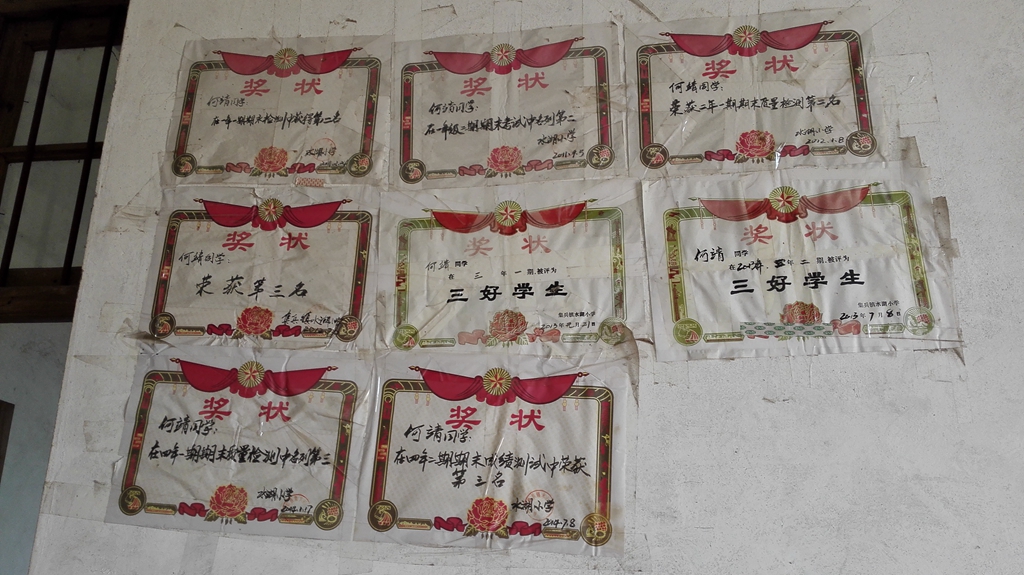 奖状
何靖同学:
在一年一期期末检测中获得第二名
水湖小学
奖状
何靖同学:
在一年级二期期末考试中专列第二
水湖小学
2011.7.5
奖状
何靖同学:
荣获二年一期期末质量检测第二名
水湖小学
2012.1.8
奖状
何靖同学:
荣获第三名
奖状
何靖 同学
在 三 年 一 期,被评为
三好学生
集兵镇水湖小学
奖状
何靖 同学
在 三 年 二 期,被评为
三好学生
集兵镇水湖小学
2013年7月8日
奖状
何靖同学:
在四年一期期末质量检测中专列第三
水湖小学
2014.1.17
奖状
何靖同学:
在四年二期期末成绩测试中荣获
第三名
水湖小学
2014.7.8